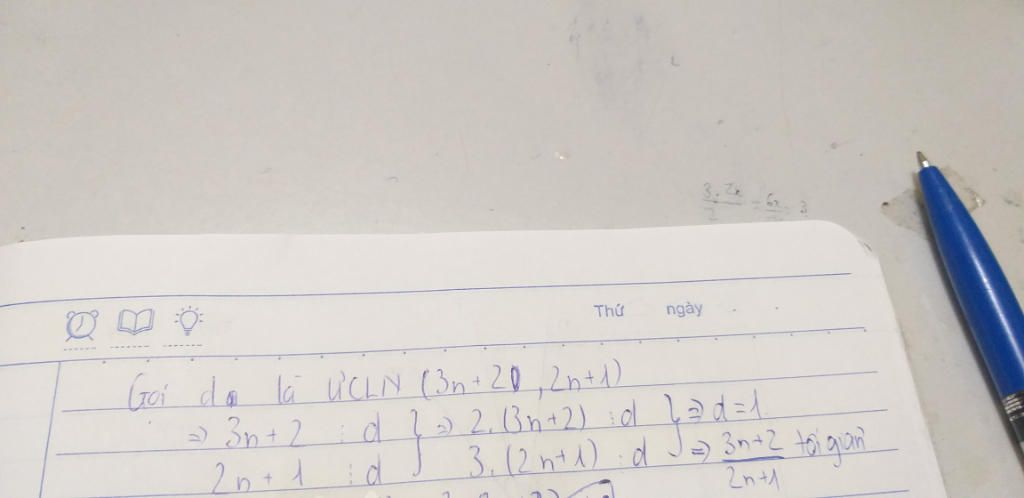 Thứ ngày
Gọi d là ƯCLN (3n+2, 2n+1)
⇒ 3n+2 ⋮ d } ⇒ 2.(3n+2) ⋮ d } ⇒ d=1
2n+1 ⋮ d 3.(2n+1) ⋮ d ⇒ 3n+2/2n+1 tối giản